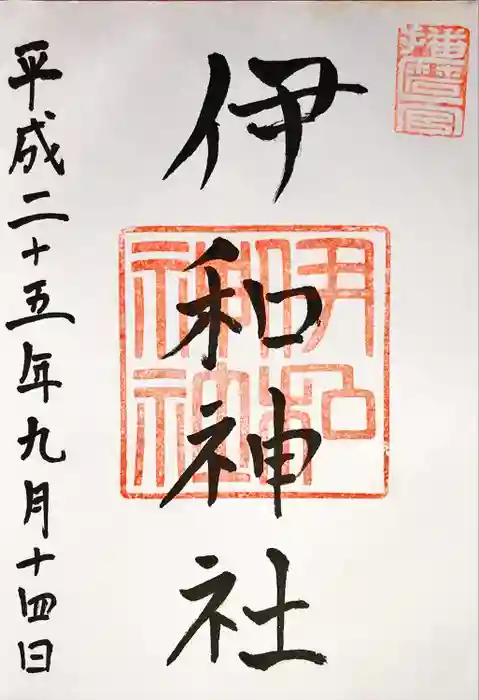 播磨国
伊和神社
伊和神社
平成二十五年九月十四日